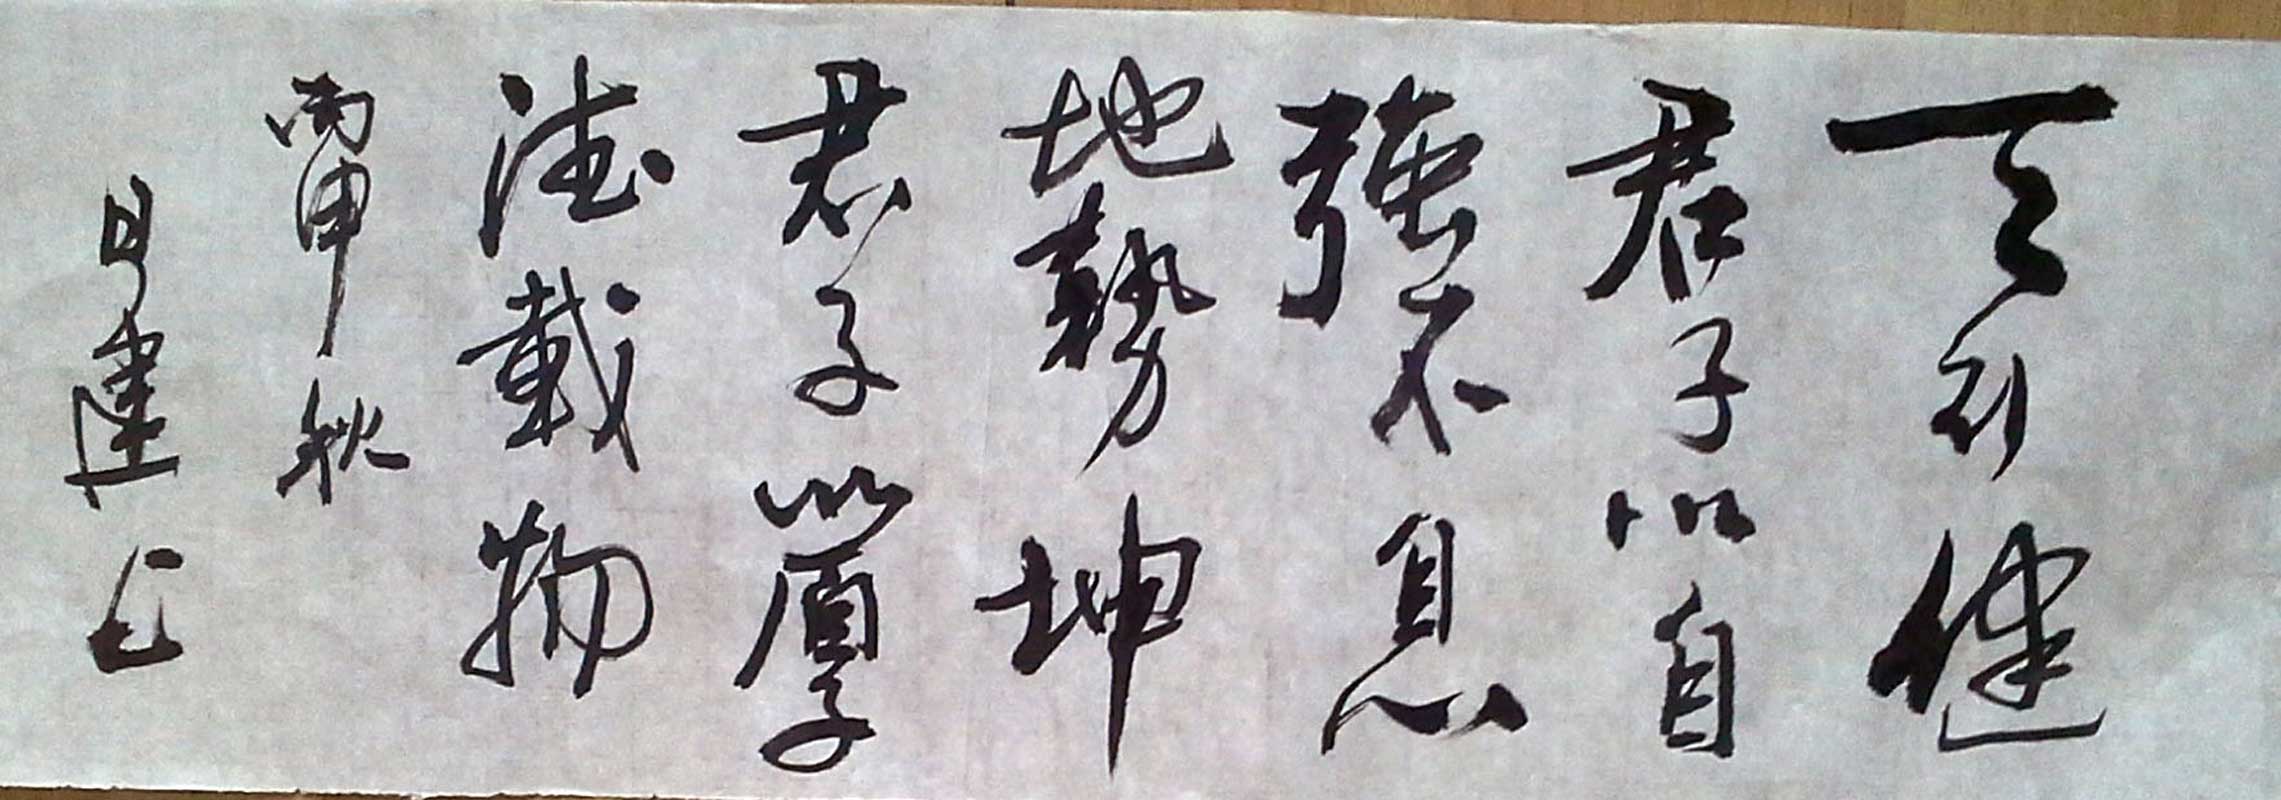 天行健
君子以自
強不息
地勢坤
君子以厚
德載物
丙申秋
日建